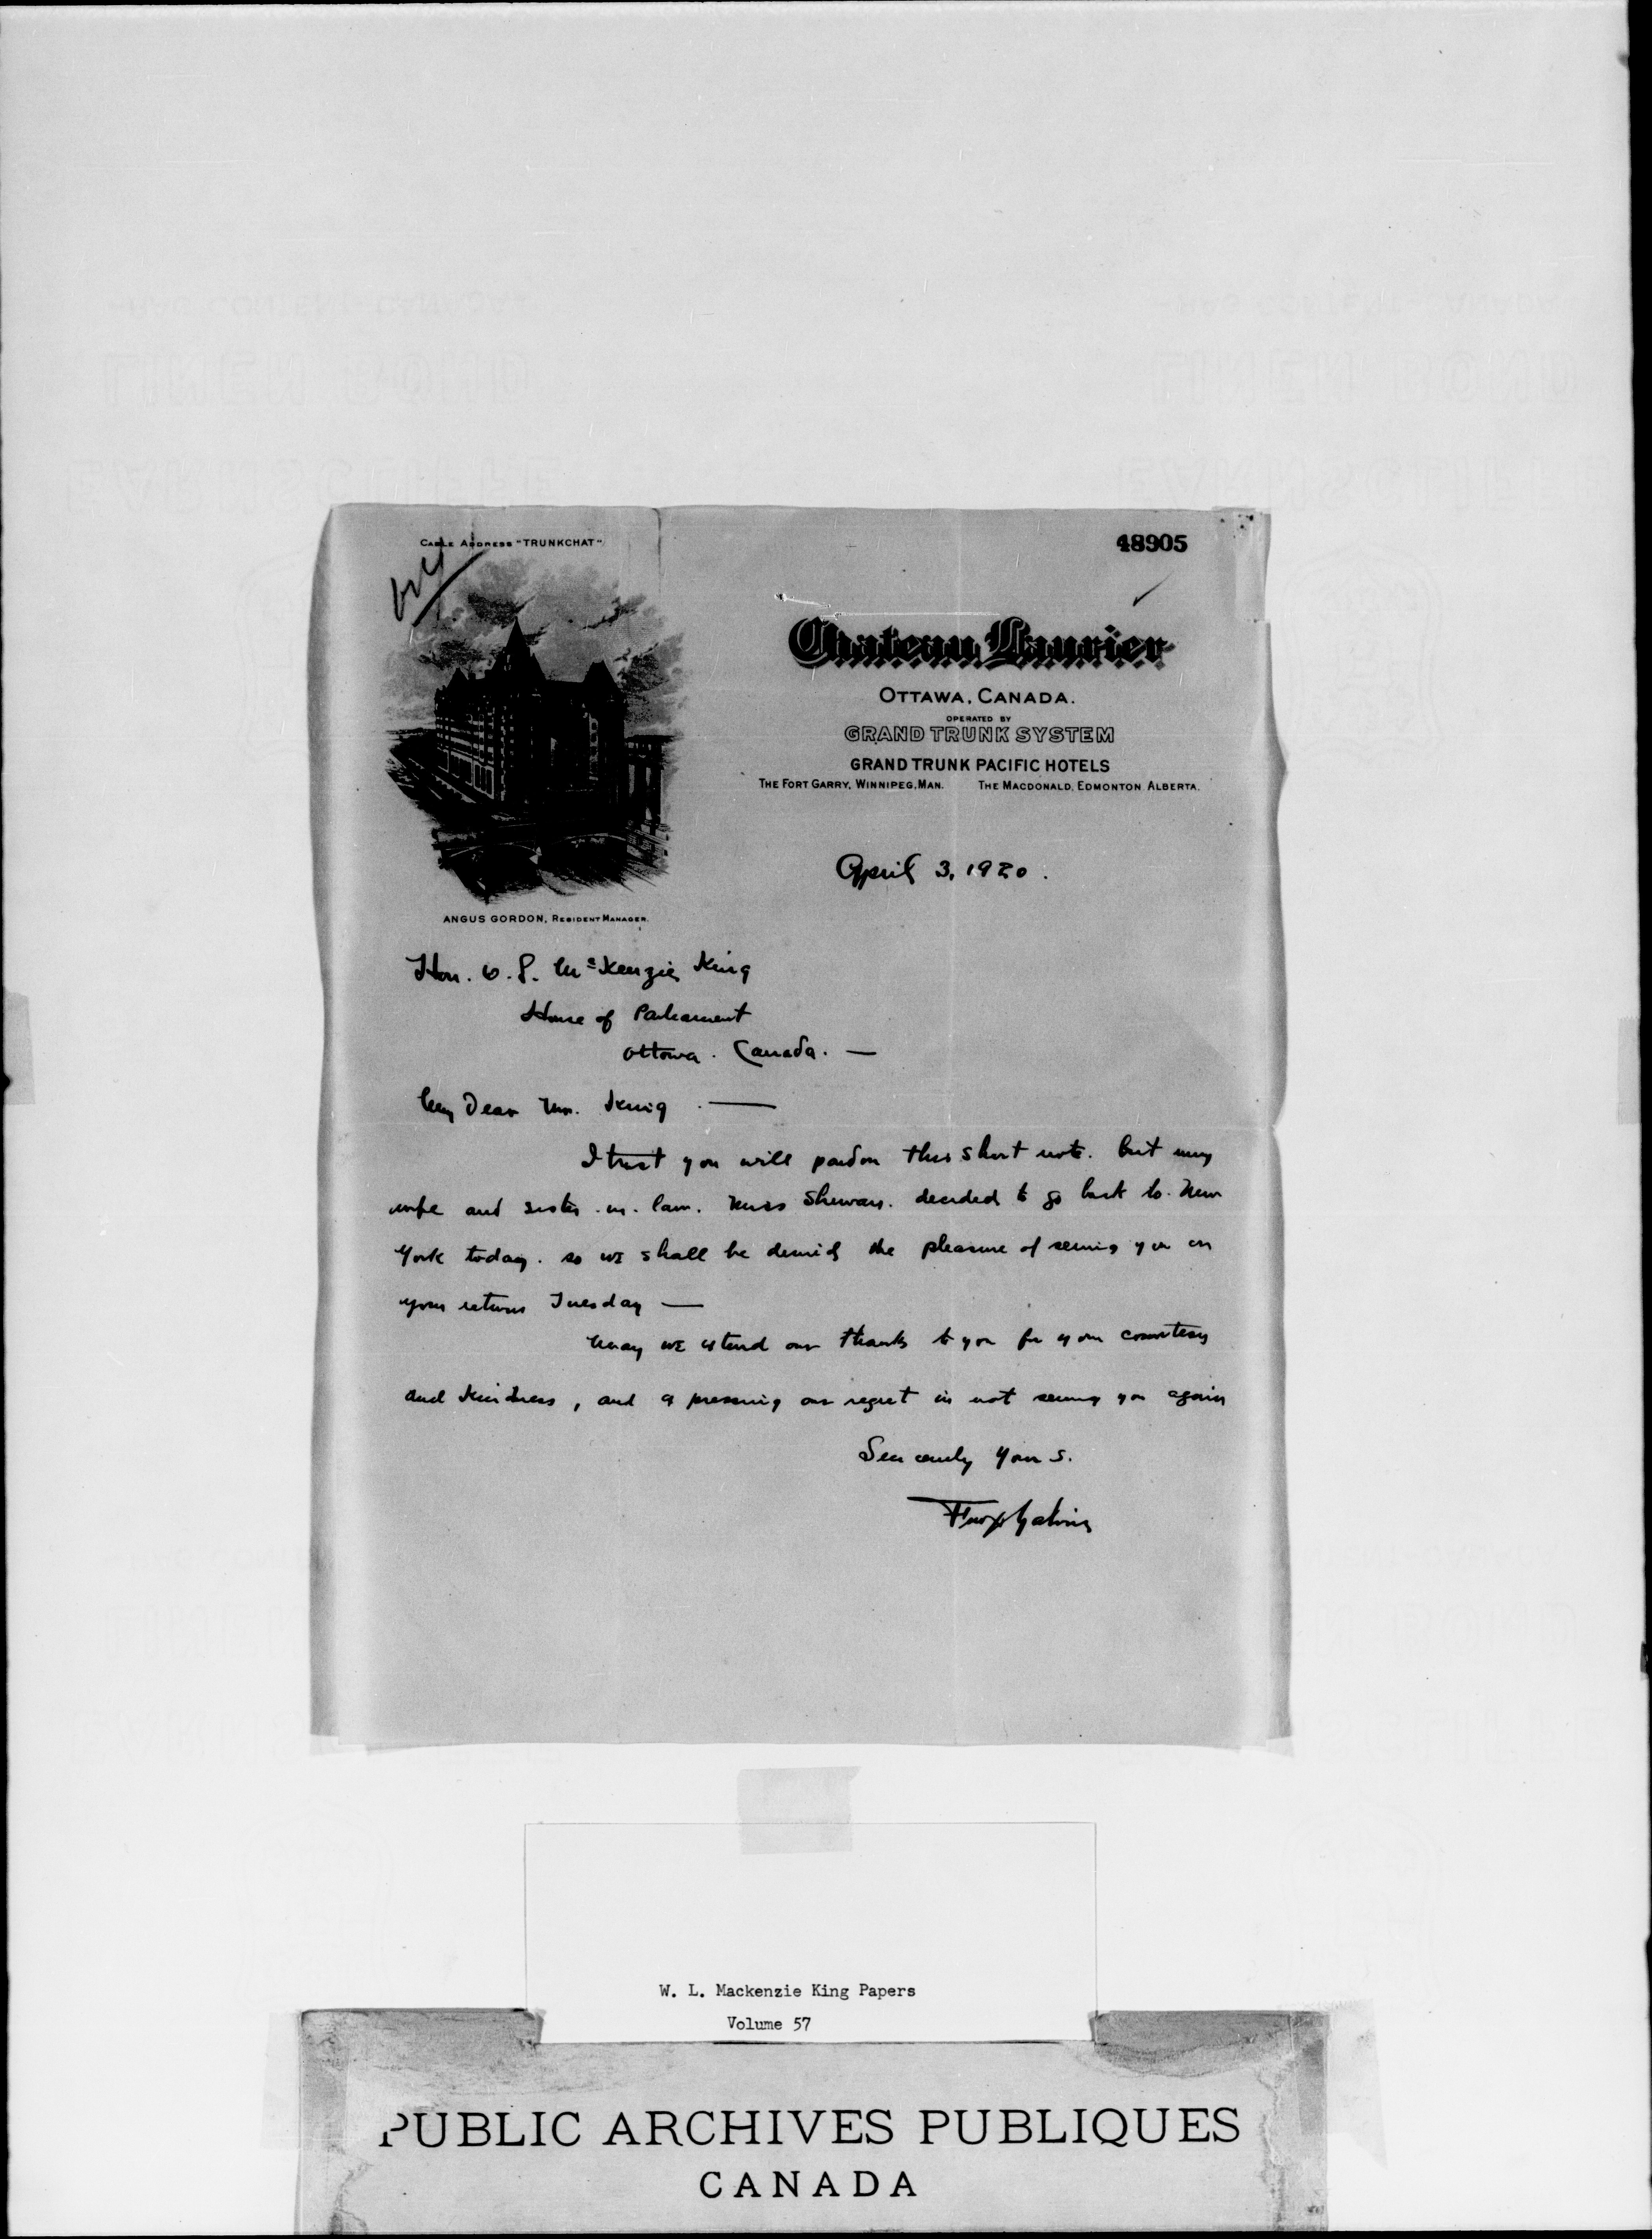 CABLE ADDRESS "TRUNKCHAT"
48905
Chateau Laurier
OTTAWA, CANADA.
OPERATED BY
GRAND TRUNK SYSTEM
GRAND TRUNK PACIFIC HOTELS
THE FORT GARRY, WINNIPEG, MAN. THE MACDONALD, EDMONTON ALBERTA.
April 3, 1920.
ANGUS GORDON, RESIDENT MANAGER.
Hon. W. L. McKenzie King
House of Parliament
Ottowa. Canada. —
My Dear Mr. King. —
I trust you will pardon this short note. but my
wife and sister-in-law. Miss Shewan. decided to go back to New
York today. so we shall be denied the pleasure of seeing you on
your return Tuesday —
May we extend our thanks to you for your courtesy
and kindness, and expressing our regret in not seeing you again
Sincerely Yours.
W. L. Mackenzie King Papers
Volume 57
PUBLIC ARCHIVES PUBLIQUES
CANADA